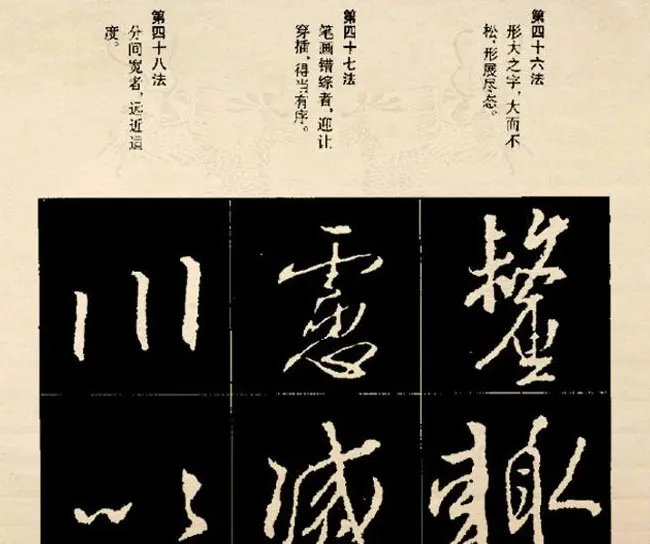 第四十六法
形大之字，大而不
松，形展尽态。
第四十七法
笔画错综者，迎让
穿插，得当有序。
第四十八法
分间宽者，远近适
度。
川
以